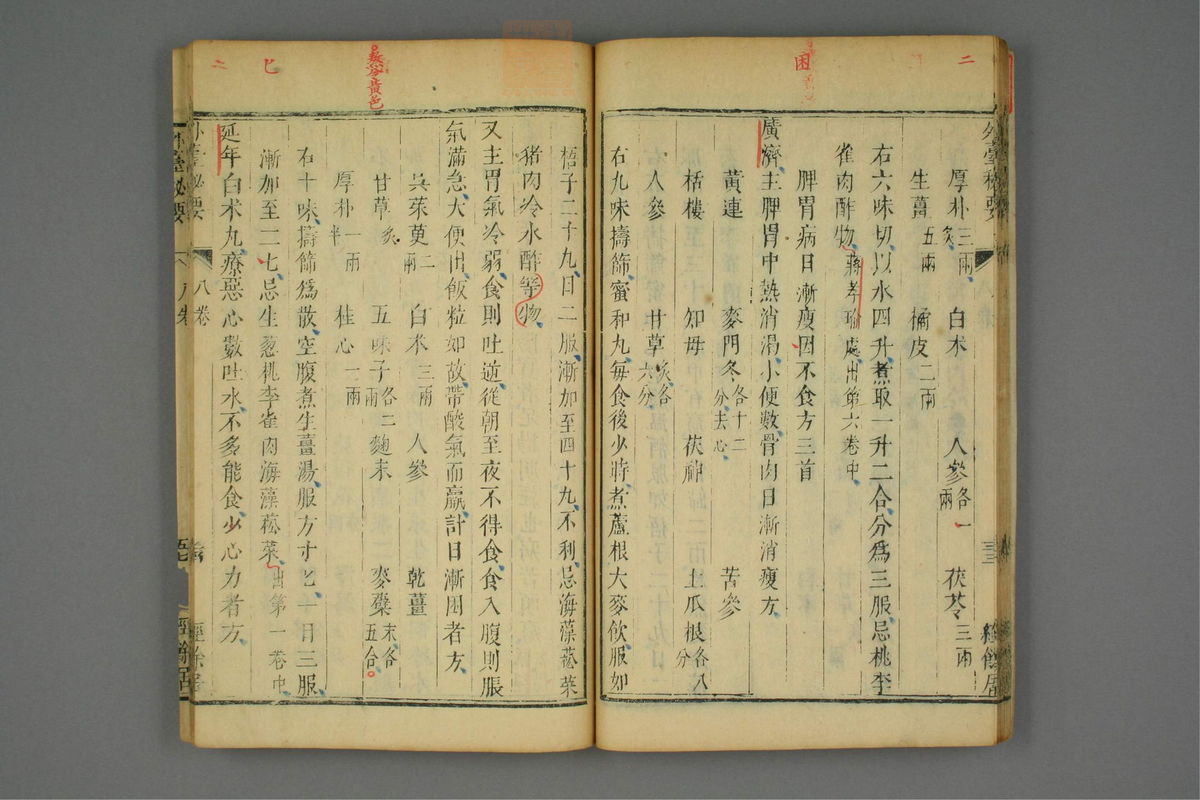 二
困
外臺秘要
厚朴三兩炙 白朮 人參各一兩 茯苓三兩
生薑五兩 橘皮二兩
右六味切以水四升煮取一升二合分爲三服忌桃李
雀肉酢物蔣孝瑜處出第六卷中
脾胃病日漸瘦因不食方三首
廣濟主脾胃中熱消渴小便數骨肉日漸消瘦方
黃連 麥門冬各十二分去心 苦參
栝樓 知母 茯神 土瓜根各八分
人參 甘草炙各六分
右九味擣篩蜜和丸每食後少時煮蘆根大麥飲服如
梧子二十丸日二服漸加至四十丸不利忌海藻菘菜
猪肉冷水酢等物
又主胃氣冷弱食則吐逆從朝至夜不得食食入腹則脹
氣滿急大便出飯粒如故帶酸氣而羸計日漸困者方
吳茱萸二兩 白朮三兩 人參 乾薑
甘草炙 五味子各二兩 麴末 麥櫱末各五合
厚朴一兩半 桂心一兩
右十味擣篩爲散空腹煮生薑湯服方寸匕日三服
漸加至二七忌生葱桃李雀肉海藻菘菜出第一卷中
延年白朮丸療惡心數吐水不多能食少心力者方
外臺秘要
八卷
經餘居
熬分黃色
匕
二